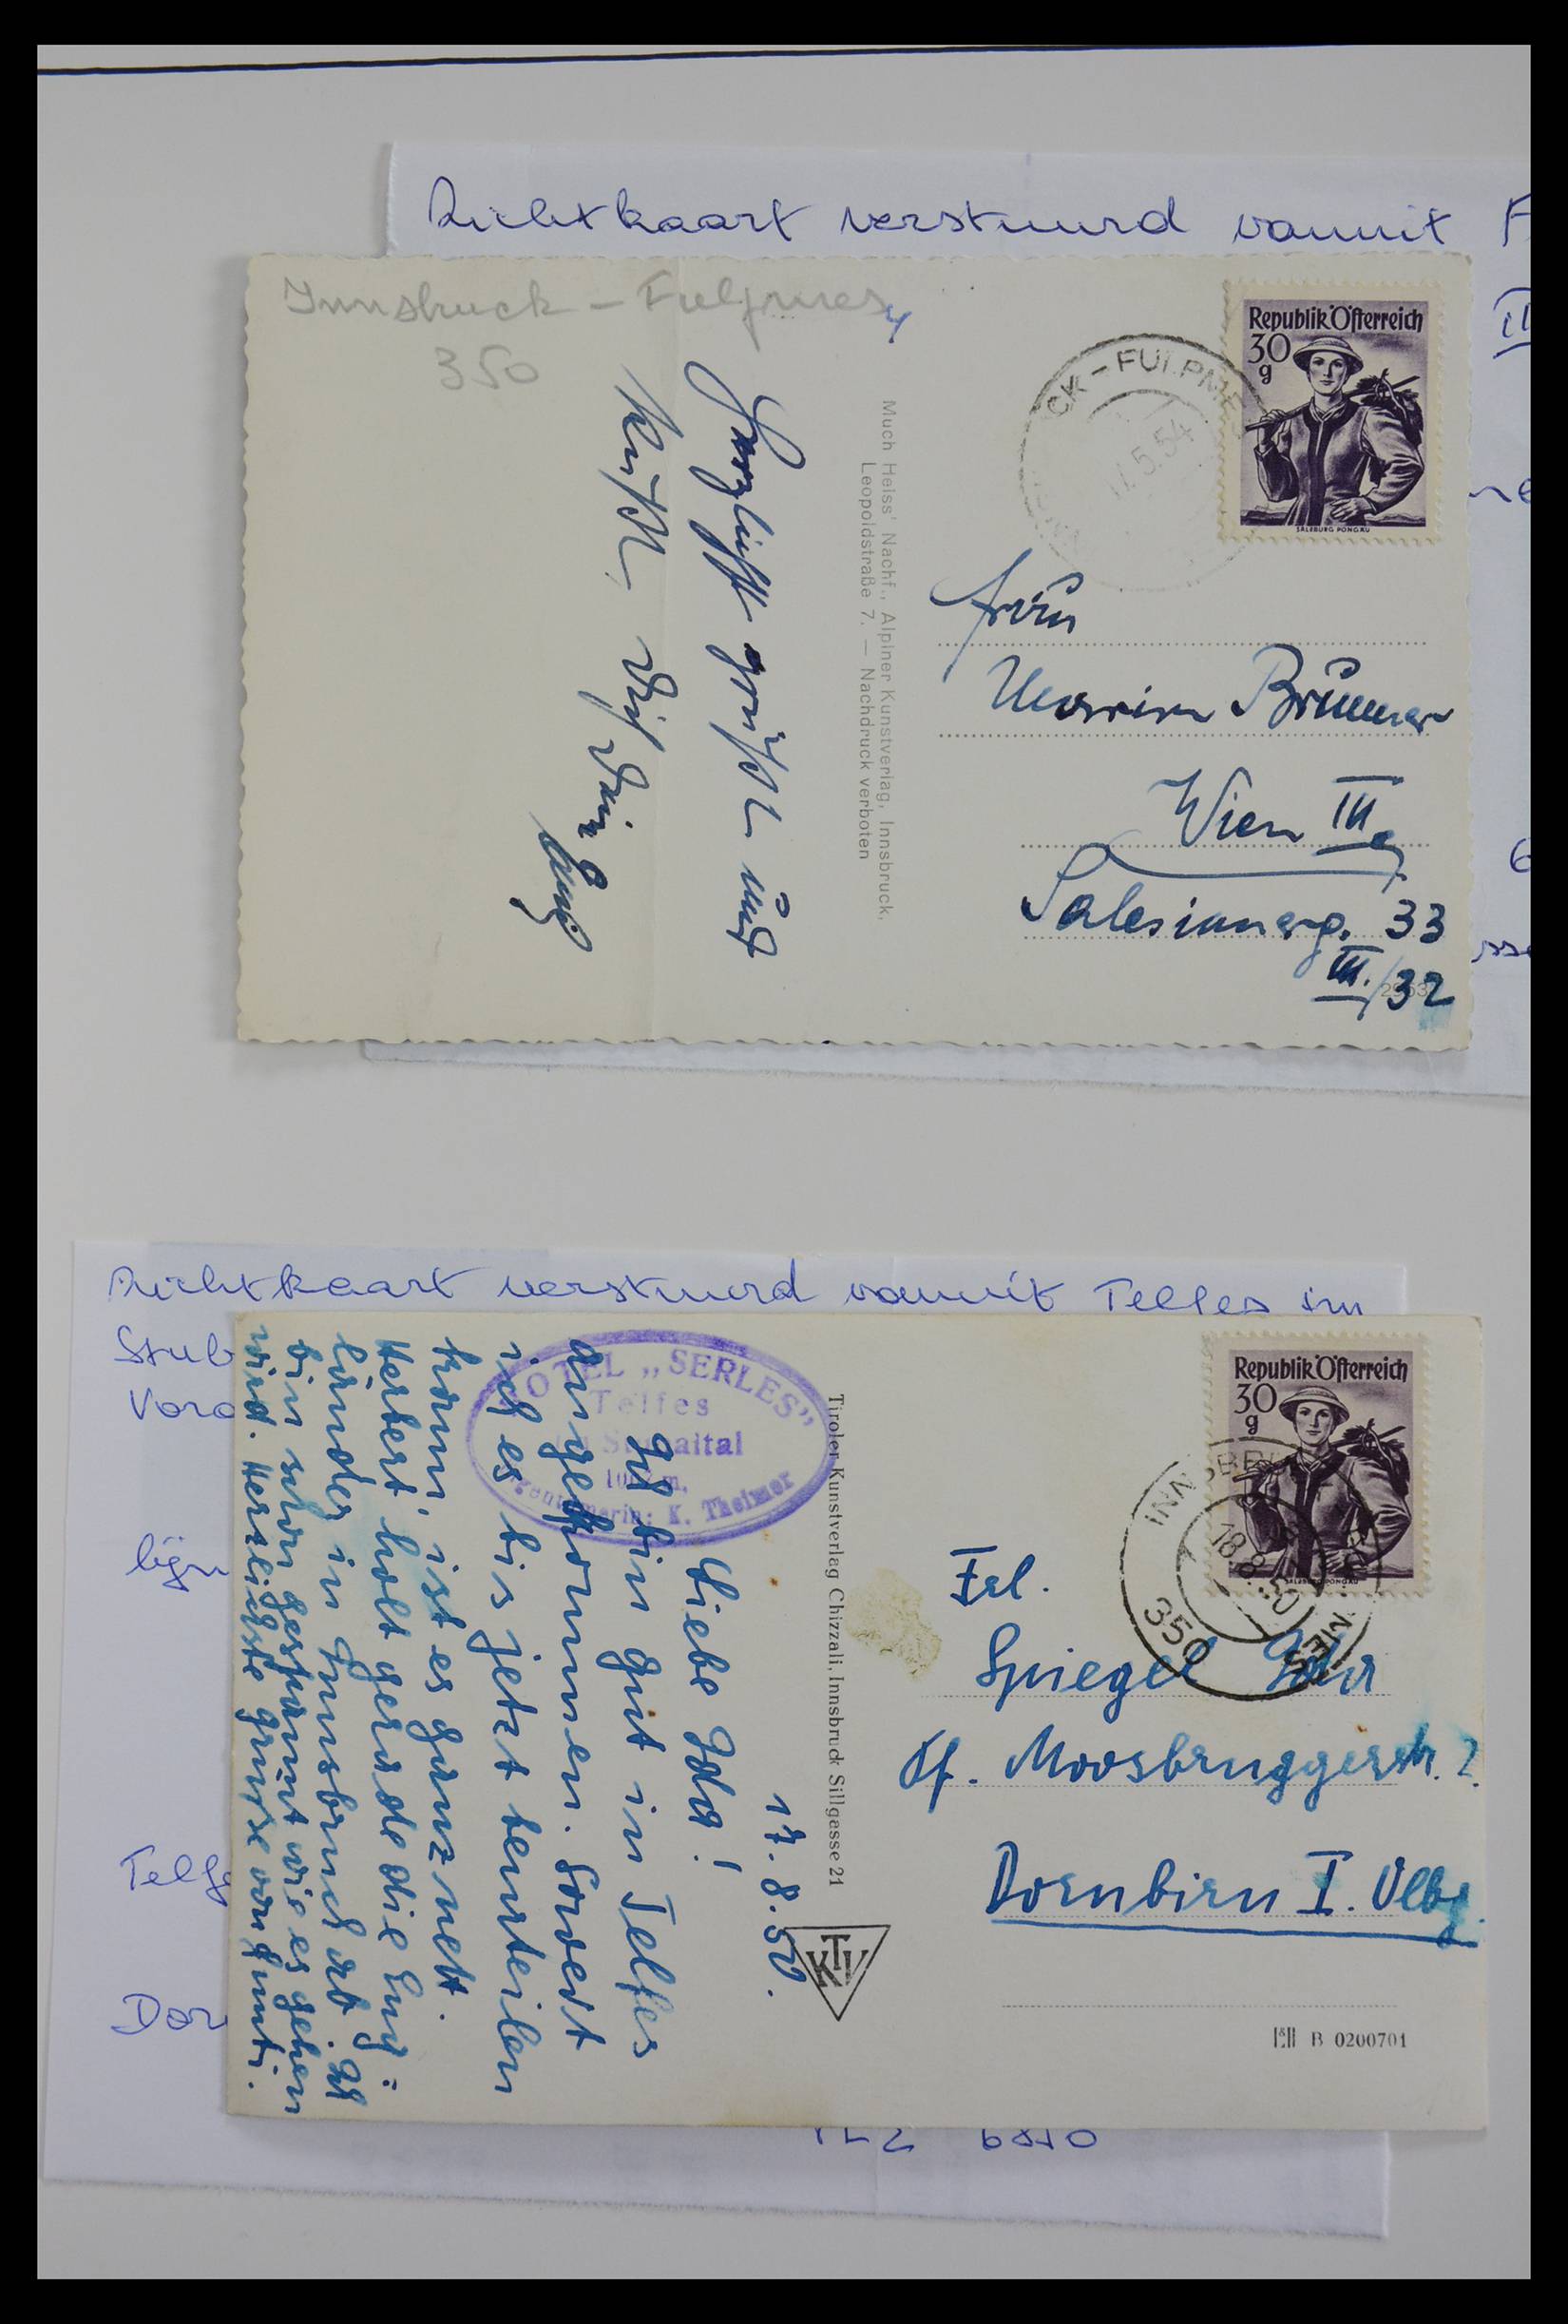 Zichtkaart verstuurd vanuit F
II
Innsbruck – Fulpmes
350
Herzlichst grüßt und
küßt Dich Dein
Much Heiss' Nachf., Alpiner Kunstverlag, Innsbruck,
Leopoldstraße 7. — Nachdruck verboten
CK – FULPME
5.54
Republik Österreich
30
g
SALZBURG PONGAU
Frau
Brunner
Wien III,
Salesianerg. 33
III./32
Zichtkaart verstuurd vanuit Telfes im
Stub
Voro
lijn
Telfe
Dor
HOTEL „SERLES"
Telfes
im Stubaital
K. Theimer
17.8.50.
Liebe Ida!
Ich bin gut in Telfes
angekommen. Soweit
ich es bis jetzt beurteilen
kann, ist es ganz nett.
Herbert holt gerade die Eng=
länder in Innsbruck ab. Ich
bin schon gespannt wie es gehen
wird. Herzlichste Grüsse von
Tiroler Kunstverlag Chizzali, Innsbruck Sillgasse 21
KTV
Republik Österreich
30
g
SALZBURG PONGAU
INNSBRUCK
18.8.50
350
Frl.
Spiegel Ida
Moosbruggerstr. 2
Dornbirn I. Vlbg.
B 0200701